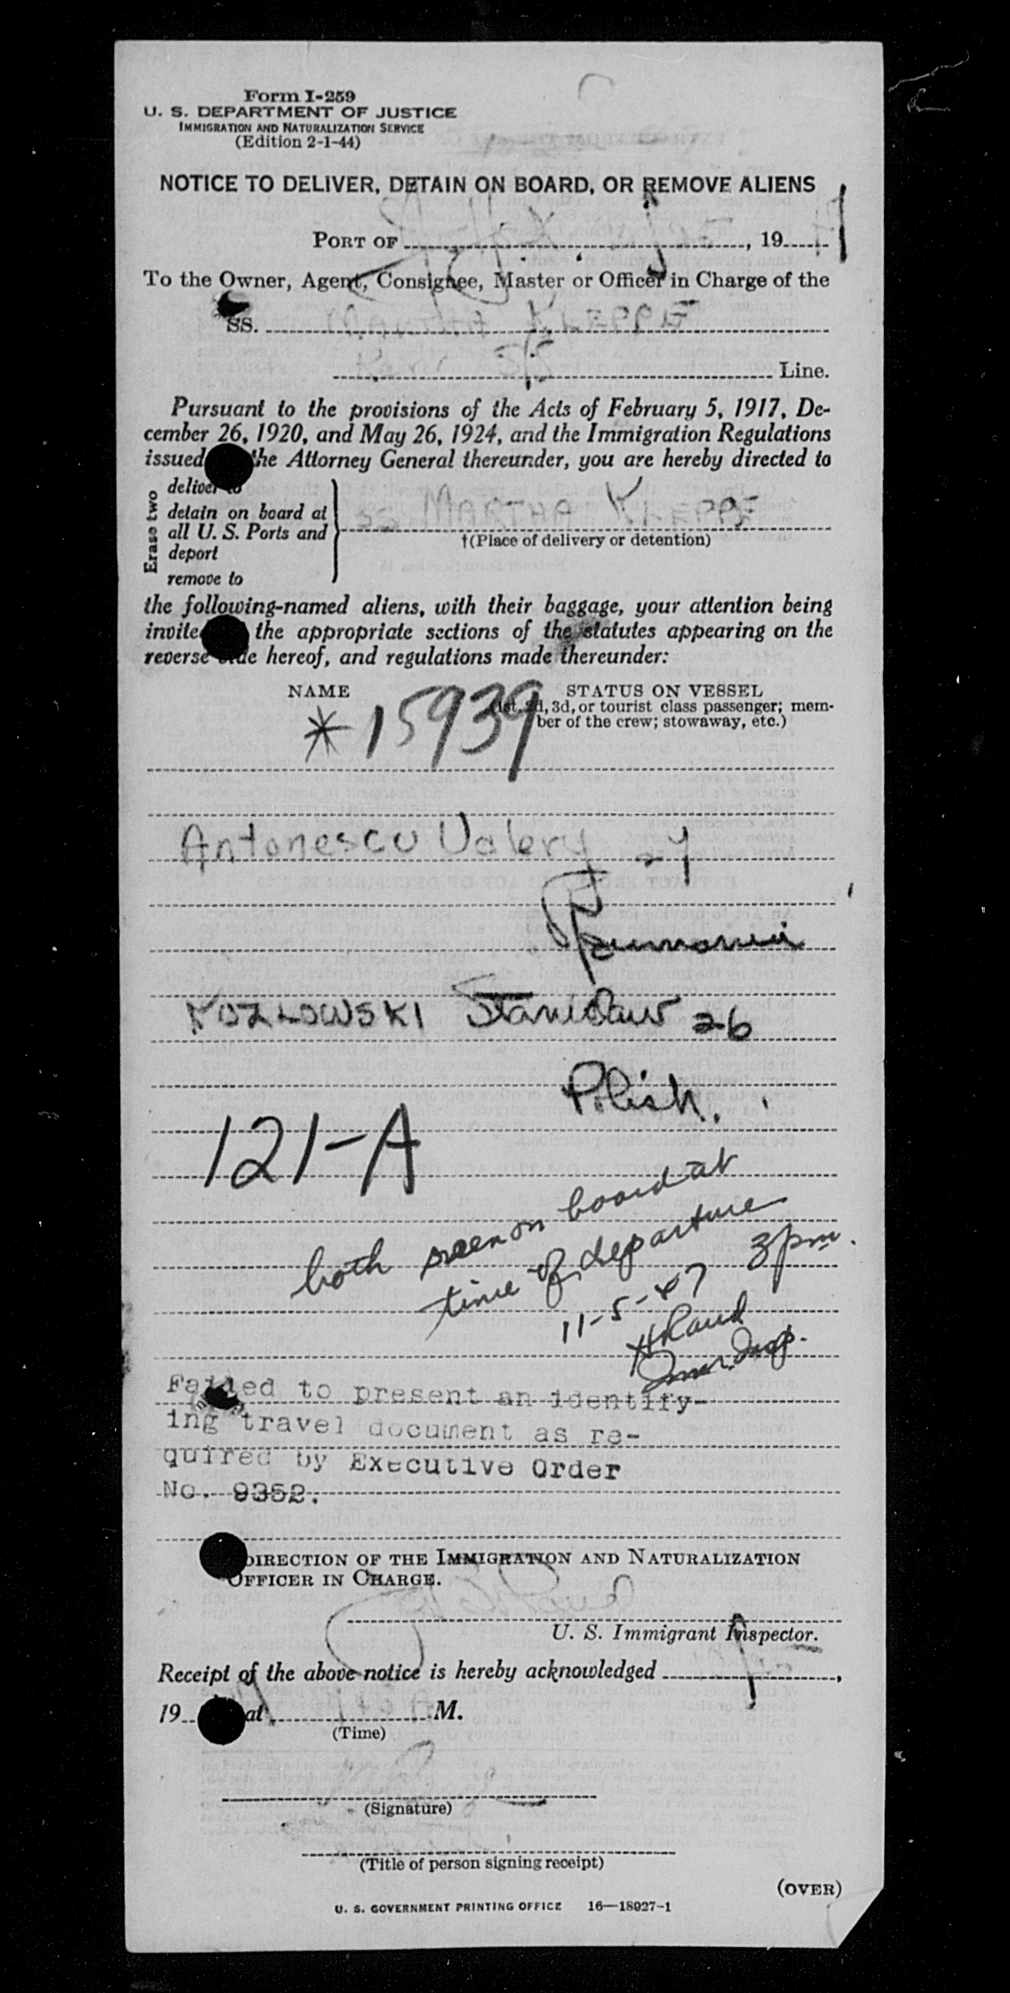 Form I-259
U. S. DEPARTMENT OF JUSTICE
IMMIGRATION AND NATURALIZATION SERVICE
(Edition 2-1-44)
NOTICE TO DELIVER, DETAIN ON BOARD, OR REMOVE ALIENS
PORT OF , 19
To the Owner, Agent, Consignee, Master or Officer in Charge of the
SS.
Line.
Pursuant to the provisions of the Acts of February 5, 1917, De-
cember 26, 1920, and May 26, 1924, and the Immigration Regulations
issued the Attorney General thereunder, you are hereby directed to
Erase two
deliver to
detain on board at
all U. S. Ports and
deport
remove to
SS MARTHA KLEPPE
†(Place of delivery or detention)
the following-named aliens, with their baggage, your attention being
invited the appropriate sections of the statutes appearing on the
reverse side hereof, and regulations made thereunder:
NAME STATUS ON VESSEL
(1st, 2d, 3d, or tourist class passenger; mem-
ber of the crew; stowaway, etc.)
* 15939
Antonescu Valery 27
Rumania
KOZLOWSKI Stanislaw 26
Polish.
121-A
both seen on board at
time of departure
11-5-47 3pm.
Failed to present an identify-
ing travel document as re-
quired by Executive Order
No. 9352.
DIRECTION OF THE IMMIGRATION AND NATURALIZATION
OFFICER IN CHARGE.
U. S. Immigrant Inspector.
Receipt of the above notice is hereby acknowledged ,
19 at M.
(Time)
(Signature)
(Title of person signing receipt)
(OVER)
U. S. GOVERNMENT PRINTING OFFICE 16—18027-1